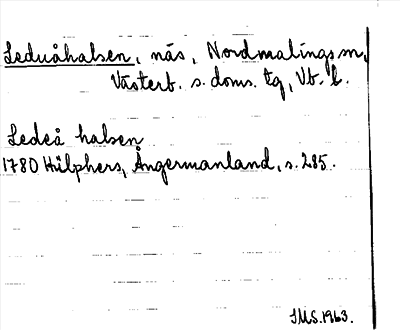 Leduåhalsen, näs, Nordmalings sn,
Västerb. s. doms. tg, Vb. l.
Ledeå halsen
1780 Hülphers, Ångermanland, s. 285.
IMS.1963.